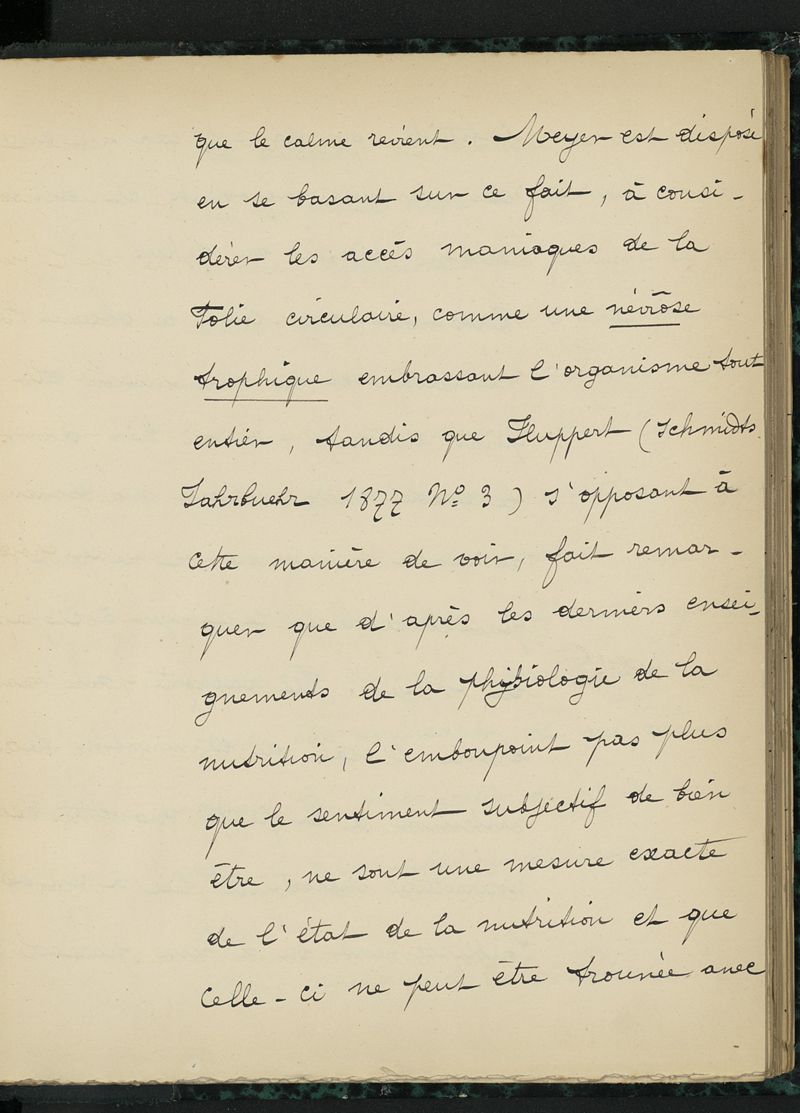 que le calme revient. Meyer est disposé
en se basant sur ce fait, à consi-
dérer les accès maniaques de la
Folie circulaire, comme une névrôse
trophique embrassant l'organisme tout
entier, tandis que Huppert (Schmidts
Jahrbuehr 1877 No 3) s'opposant à
cette manière de voir, fait remar-
quer que d'après les derniers ensei-
gnements de la physiologie de la
nutrition, l'embonpoint pas plus
que le sentiment subjectif de bien
être, ne sont une mesure exacte
de l'état de la nutrition et que
celle-ci ne peut être trouvée avec